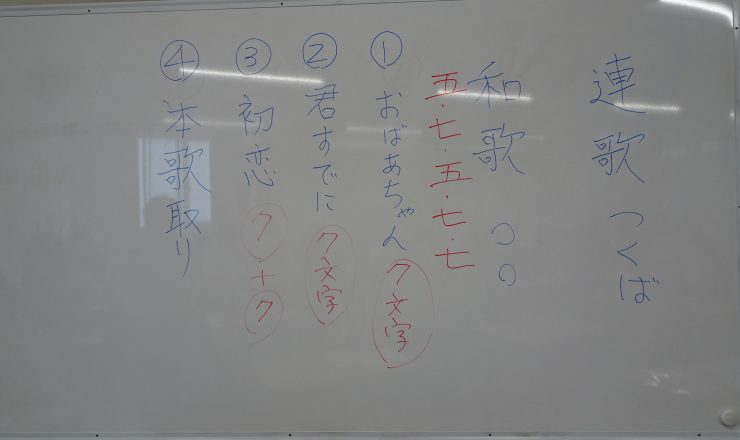 連歌 つくば
和歌 〇〇
五・七・五・七・七
① おばあちゃん 7文字
② 君すでに 7文字
③ 初恋 7+7
④ 本歌取り